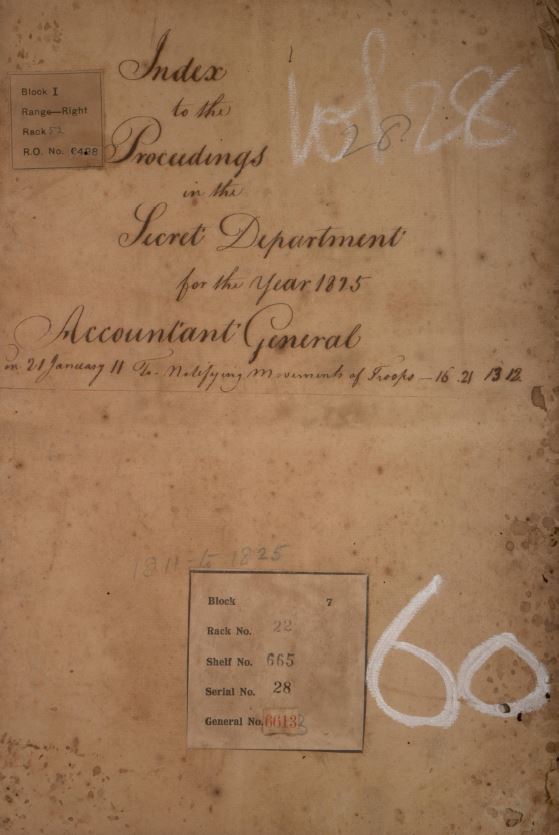 Index
to the
Proceedings
in the
Secret Department
for the Year 1825
Accountant General
in 21 January 11 To Notifying Movements of Troops — 16 . 21 13 12
Block I
Range—Right
Rack 52
R.O. No. 6428
Vol 28
28
1811 to 1825
Block 7
Rack No. 22
Shelf No. 665
Serial No. 28
General No. 6613
60